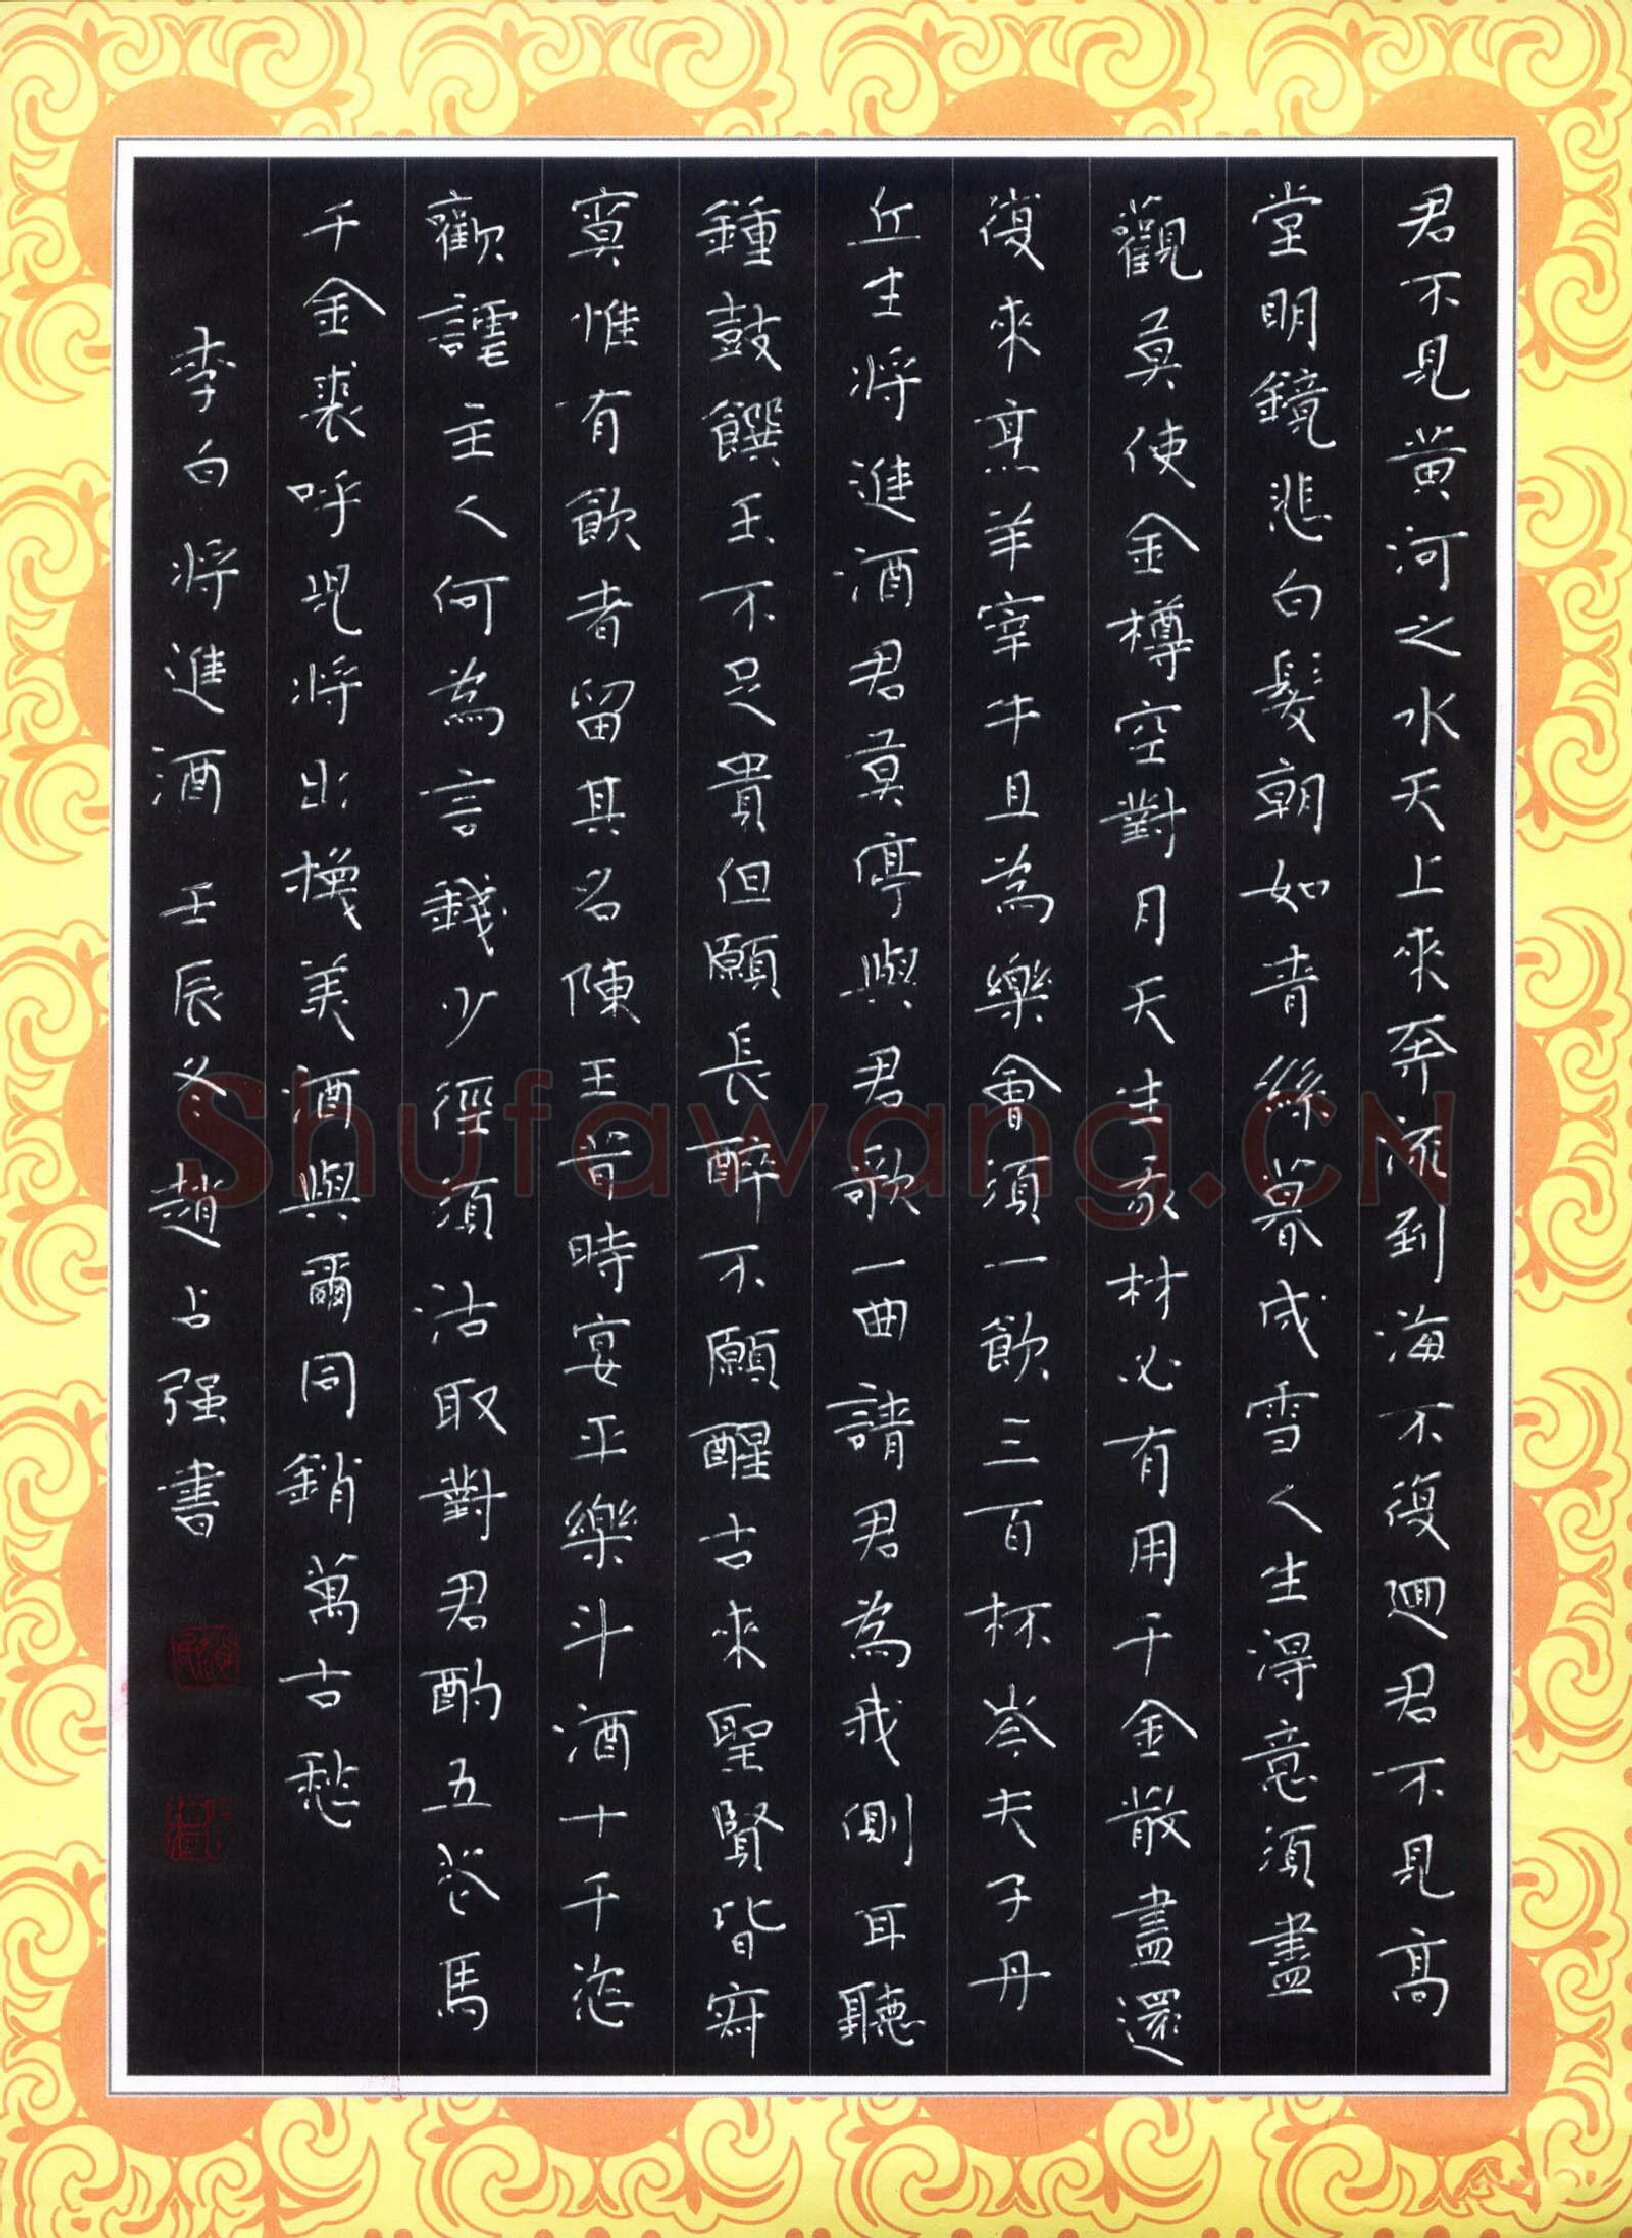 君不見黄河之水天上來奔流到海不復迴君不見高
堂明鏡悲白髮朝如青絲暮成雪人生得意須盡
觀莫使金樽空對月天生我材必有用千金散盡還
復來烹羊宰牛且為樂會須一飲三百杯岑夫子丹
丘生將進酒君莫亭與君歌一曲請君為我側耳聽
鍾鼓饌玉不足貴但願長醉不願醒古來聖賢皆寂
寞惟有飲者留其名陳王昔時宴平樂斗酒十千恣
歡謔主人何為言錢少徑須沽取對君酌五花馬
千金裘呼兒將出換美酒與爾同銷萬古愁
李白將進酒 壬辰冬趙占强書
Shufawang.CN